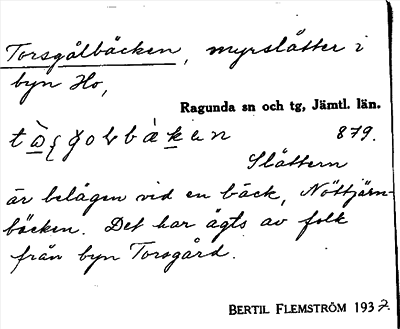 Torsgålbäcken, myrslåtter i
byn Ho,
Ragunda sn och tg, Jämtl. län.
879.
Slåttern
är belägen vid en bäck, Nöttjärn-
bäcken. Det har ägts av folk
från byn Torsgård.
BERTIL FLEMSTRÖM 1937.